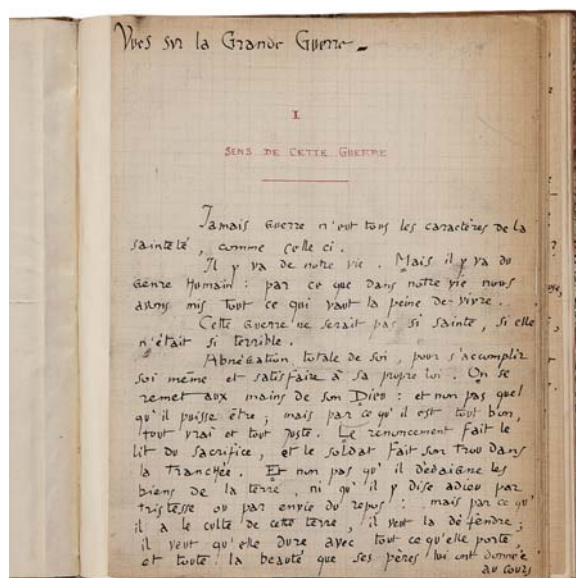 Vues sur la Grande Guerre _
I
SENS DE CETTE GUERRE
Jamais Guerre n'eut tous les caractères de la
sainteté, comme celle ci.
Il y va de notre vie. Mais il y va du
Genre Humain : par ce que dans notre vie nous
avons mis tout ce qui vaut la peine de vivre.
Cette Guerre ne serait pas si sainte, si elle
n'était si terrible.
Abnégation totale de soi, pour s'accomplir
soi même et satisfaire à sa propre loi. On se
remet aux mains de son Dieu : et non pas quel
qu'il puisse être ; mais par ce qu'il est tout bon,
tout vrai et tout juste. Le renoncement fait le
lit du sacrifice, et le soldat fait son trou dans
la Tranchée. Et non pas qu'il dédaigne les
biens de la terre, ni qu'il y dise adieu par
tristesse ou par envie du repos : mais par ce qu'
il a le culte de cette terre, il veut la défendre ;
il veut qu'elle dure avec tout ce qu'elle porte,
et toute la beauté que ses pères lui ont donnée
au cours